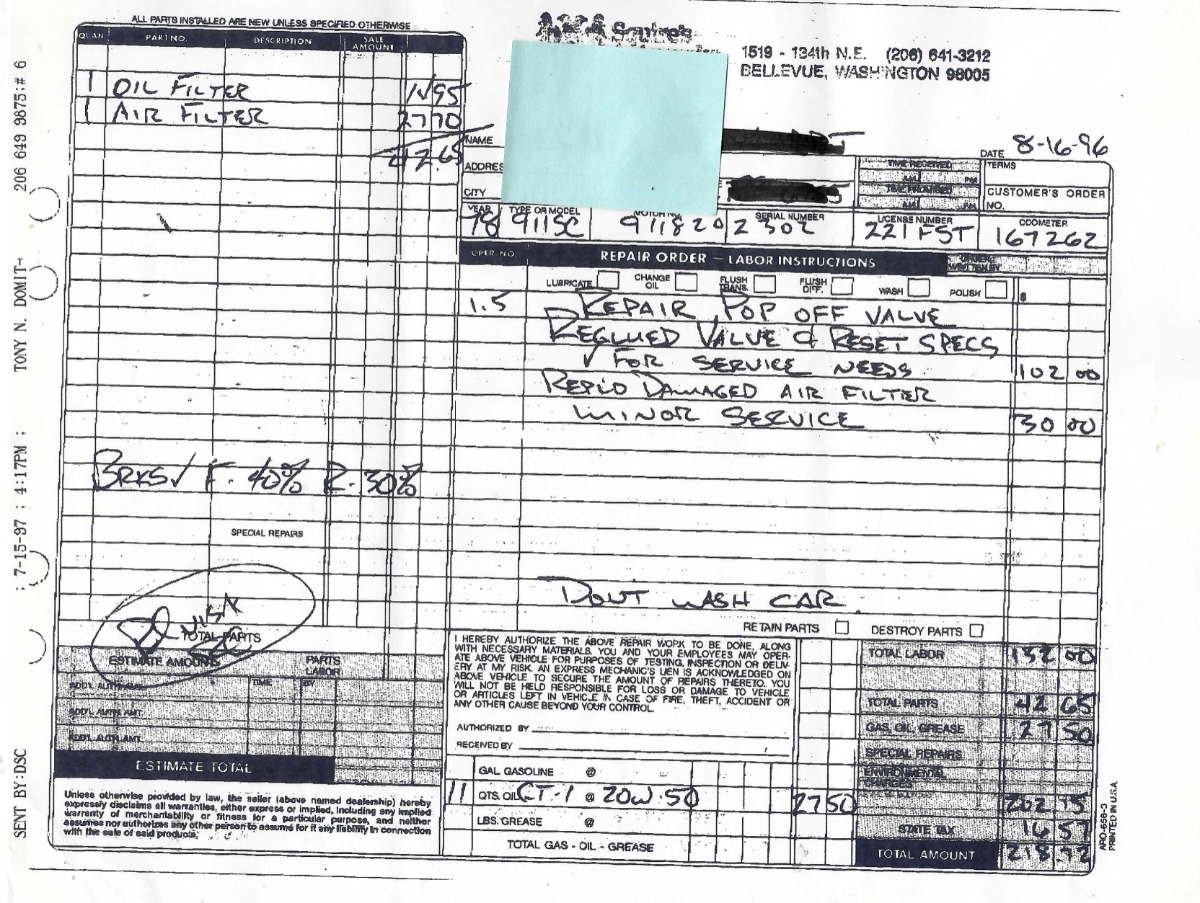 ALL PARTS INSTALLED ARE NEW UNLESS SPECIFIED OTHERWISE
QUAN. PART NO. DESCRIPTION SALE AMOUNT
1 OIL FILTER 1495
1 AIR FILTER 2770
42.65
BRKS ✓ F. 40% R. 30%
SPECIAL REPAIRS
VISA
TOTAL PARTS
ESTIMATE AMOUNTS PARTS LABOR
ADD'L AUTH. AMT. TIME BY
ADD'L AUTH. AMT.
ADD'L AUTH. AMT.
ESTIMATE TOTAL
Unless otherwise provided by law, the seller (above named dealership) hereby
expressly disclaims all warranties, either express or implied, including any implied
warranty of merchantability or fitness for a particular purpose, and neither
assumes nor authorizes any other person to assume for it any liability in connection
with the sale of said products.
Squire's
1519 - 134th N.E. (206) 641-3212
BELLEVUE, WASHINGTON 98005
DATE 8-16-96
NAME
ADDRES
CITY
TIME RECEIVED AM PM
TIME PROMISED AM PM
TERMS
CUSTOMER'S ORDER NO.
YEAR TYPE OR MODEL MOTOR NO. SERIAL NUMBER LICENSE NUMBER ODOMETER
78 911SC 911820 2302 221 FST 167262
OPER. NO. REPAIR ORDER — LABOR INSTRUCTIONS
LUBRICATE CHANGE OIL FLUSH TRANS. FLUSH DIFF. WASH POLISH $
1.5 REPAIR POP OFF VALVE
REGLUED VALVE & RESET SPECS
✓ FOR SERVICE NEEDS 102 00
REPLD DAMAGED AIR FILTER
MINOR SERVICE 30 00
DONT WASH CAR
RETAIN PARTS DESTROY PARTS
I HEREBY AUTHORIZE THE ABOVE REPAIR WORK TO BE DONE, ALONG
WITH NECESSARY MATERIALS. YOU AND YOUR EMPLOYEES MAY OPER-
ATE ABOVE VEHICLE FOR PURPOSES OF TESTING, INSPECTION OR DELIV-
ERY AT MY RISK. AN EXPRESS MECHANIC'S LIEN IS ACKNOWLEDGED ON
ABOVE VEHICLE TO SECURE THE AMOUNT OF REPAIRS THERETO. YOU
WILL NOT BE HELD RESPONSIBLE FOR LOSS OR DAMAGE TO VEHICLE
OR ARTICLES LEFT IN VEHICLE IN CASE OF FIRE, THEFT, ACCIDENT OR
ANY OTHER CAUSE BEYOND YOUR CONTROL.
AUTHORIZED BY
RECEIVED BY
GAL. GASOLINE @
11 QTS. OIL CT-1 @ 20W.50 2750
LBS. GREASE @
TOTAL GAS - OIL - GREASE
TOTAL LABOR 132 00
TOTAL PARTS 42 65
GAS, OIL, GREASE 27 50
SPECIAL REPAIRS
ENVIRONMENTAL CHARGES
202 15
STATE TAX 16 57
TOTAL AMOUNT 218 72
ARO-658-3
PRINTED IN U.S.A.
SENT BY:DSC ; 7-15-97 ; 4:17PM ; TONY N. DOMIT→ 206 649 9875;# 6